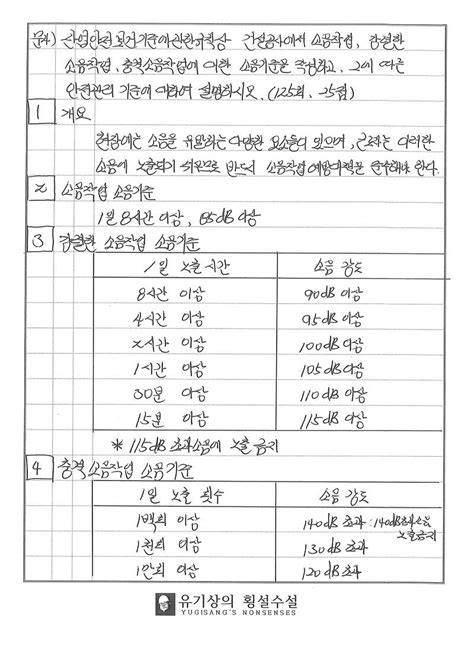 문4) 산업안전보건기준에관한규칙상 건설공사에서 소음작업, 강렬한
소음작업, 충격소음작업에 대한 소음기준을 작성하고, 그에 따른
안전관리 기준에 대하여 설명하시오. (125회, 25점)
1 개요
현장에는 소음을 유발하는 다양한 요소들이 있으며, 근로자는 이러한
소음에 노출되기 때문으로 반드시 소음작업 예방대책을 준수해야 한다.
2 소음작업 소음기준
1일 8시간 이상, 85dB 이상
3 강렬한 소음작업 소음기준
1일 노출시간 소음 강도
8시간 이상 90dB 이상
4시간 이상 95dB 이상
2시간 이상 100dB 이상
1시간 이상 105dB 이상
30분 이상 110dB 이상
15분 이상 115dB 이상
* 115dB 초과소음에 노출 금지
4 충격 소음작업 소음기준
1일 노출 횟수 소음 강도
1백회 이상 140dB 초과 : 140dB초과소음
노출금지
1천회 이상 130dB 초과
1만회 이상 120dB 초과
유기상의 횡설수설
YUGISANG'S NONSENSES